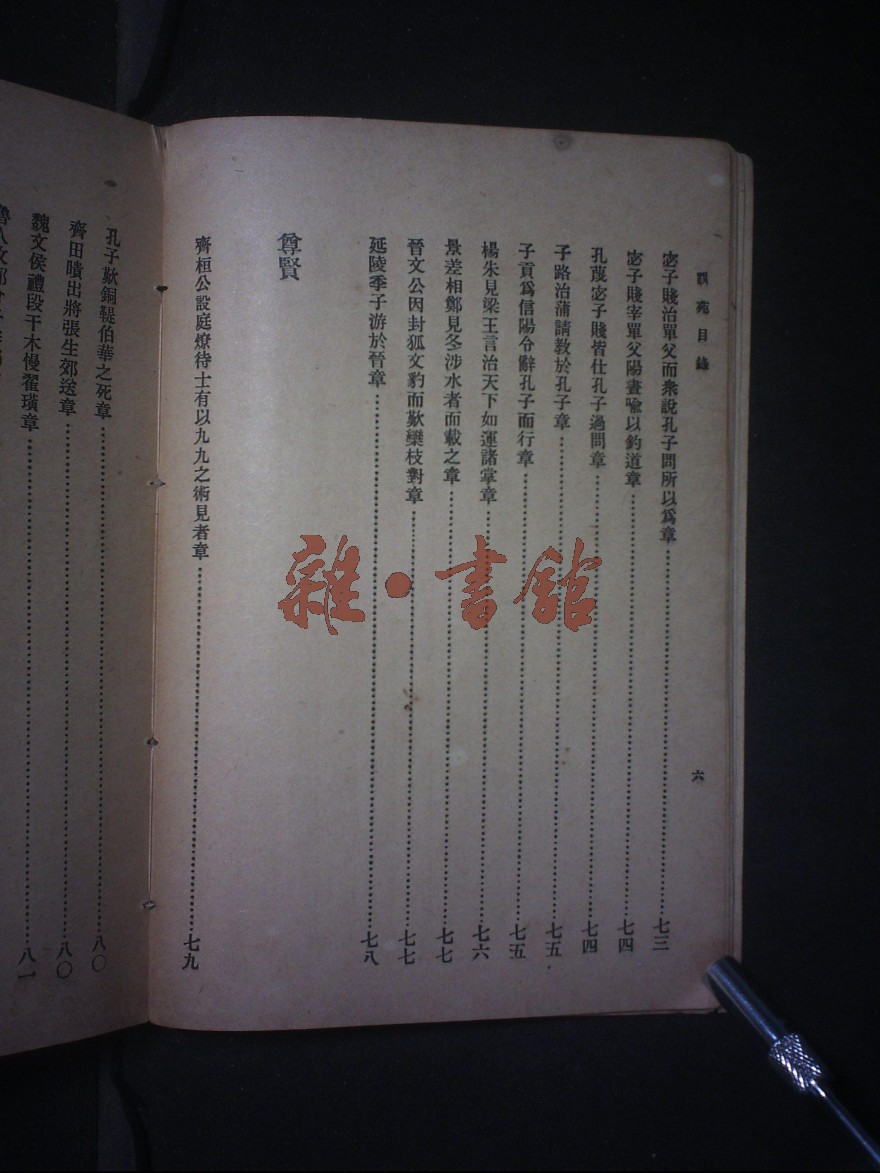 說苑目錄
六
宓子賤治單父而衆說孔子問所以爲章……七三
宓子賤宰單父陽晝喩以釣道章……七四
孔蔑宓子賤皆仕孔子過問章……七四
子路治蒲請教於孔子章……七五
子貢爲信陽令辭孔子而行章……七五
楊朱見梁王言治天下如運諸掌章……七六
景差相鄭見冬涉水者而載之章……七七
晉文公因封狐文豹而歎欒枝對章……七七
延陵季子游於晉章……七八
尊賢
齊桓公設庭燎待士有以九九之術見者章……七九
孔子歎銅鞮伯華之死章……八〇
齊田瞶出將張生郊送章……八〇
魏文侯禮段干木慢翟璜章……八一
雜·書館